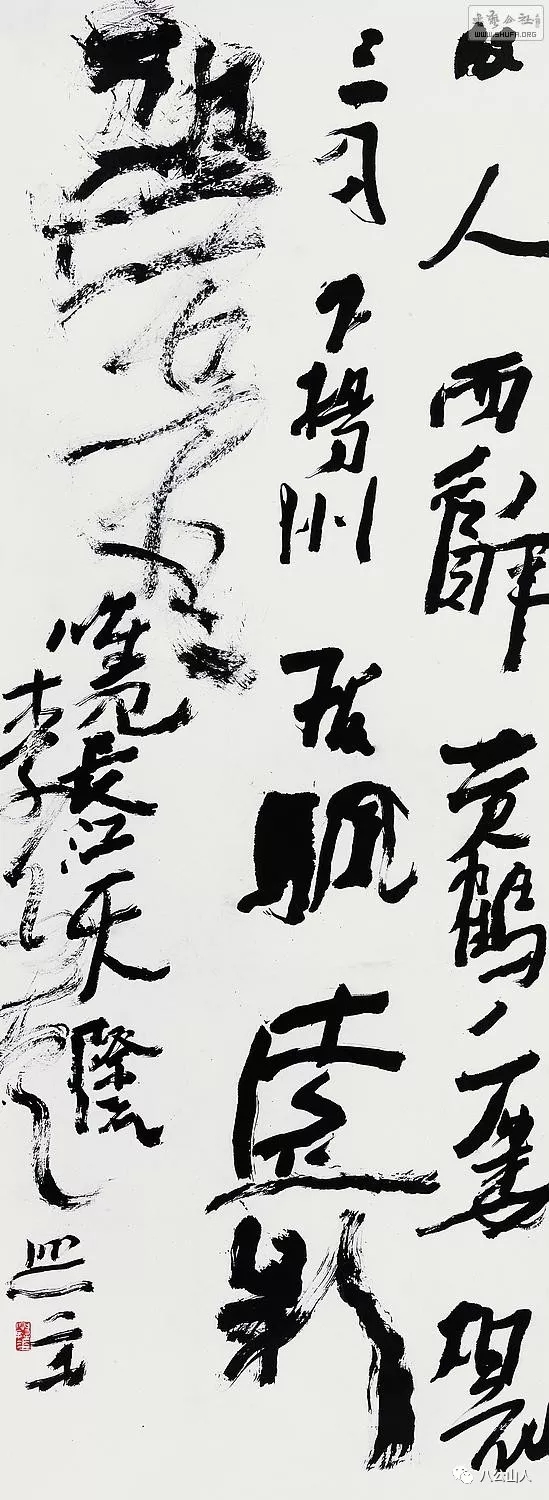 書藝公社
WWW.SHUFA.ORG
故人西辭黃鶴樓煙花
三月下揚州孤帆遠影
碧空盡唯見長江天際流
李白
八公山人